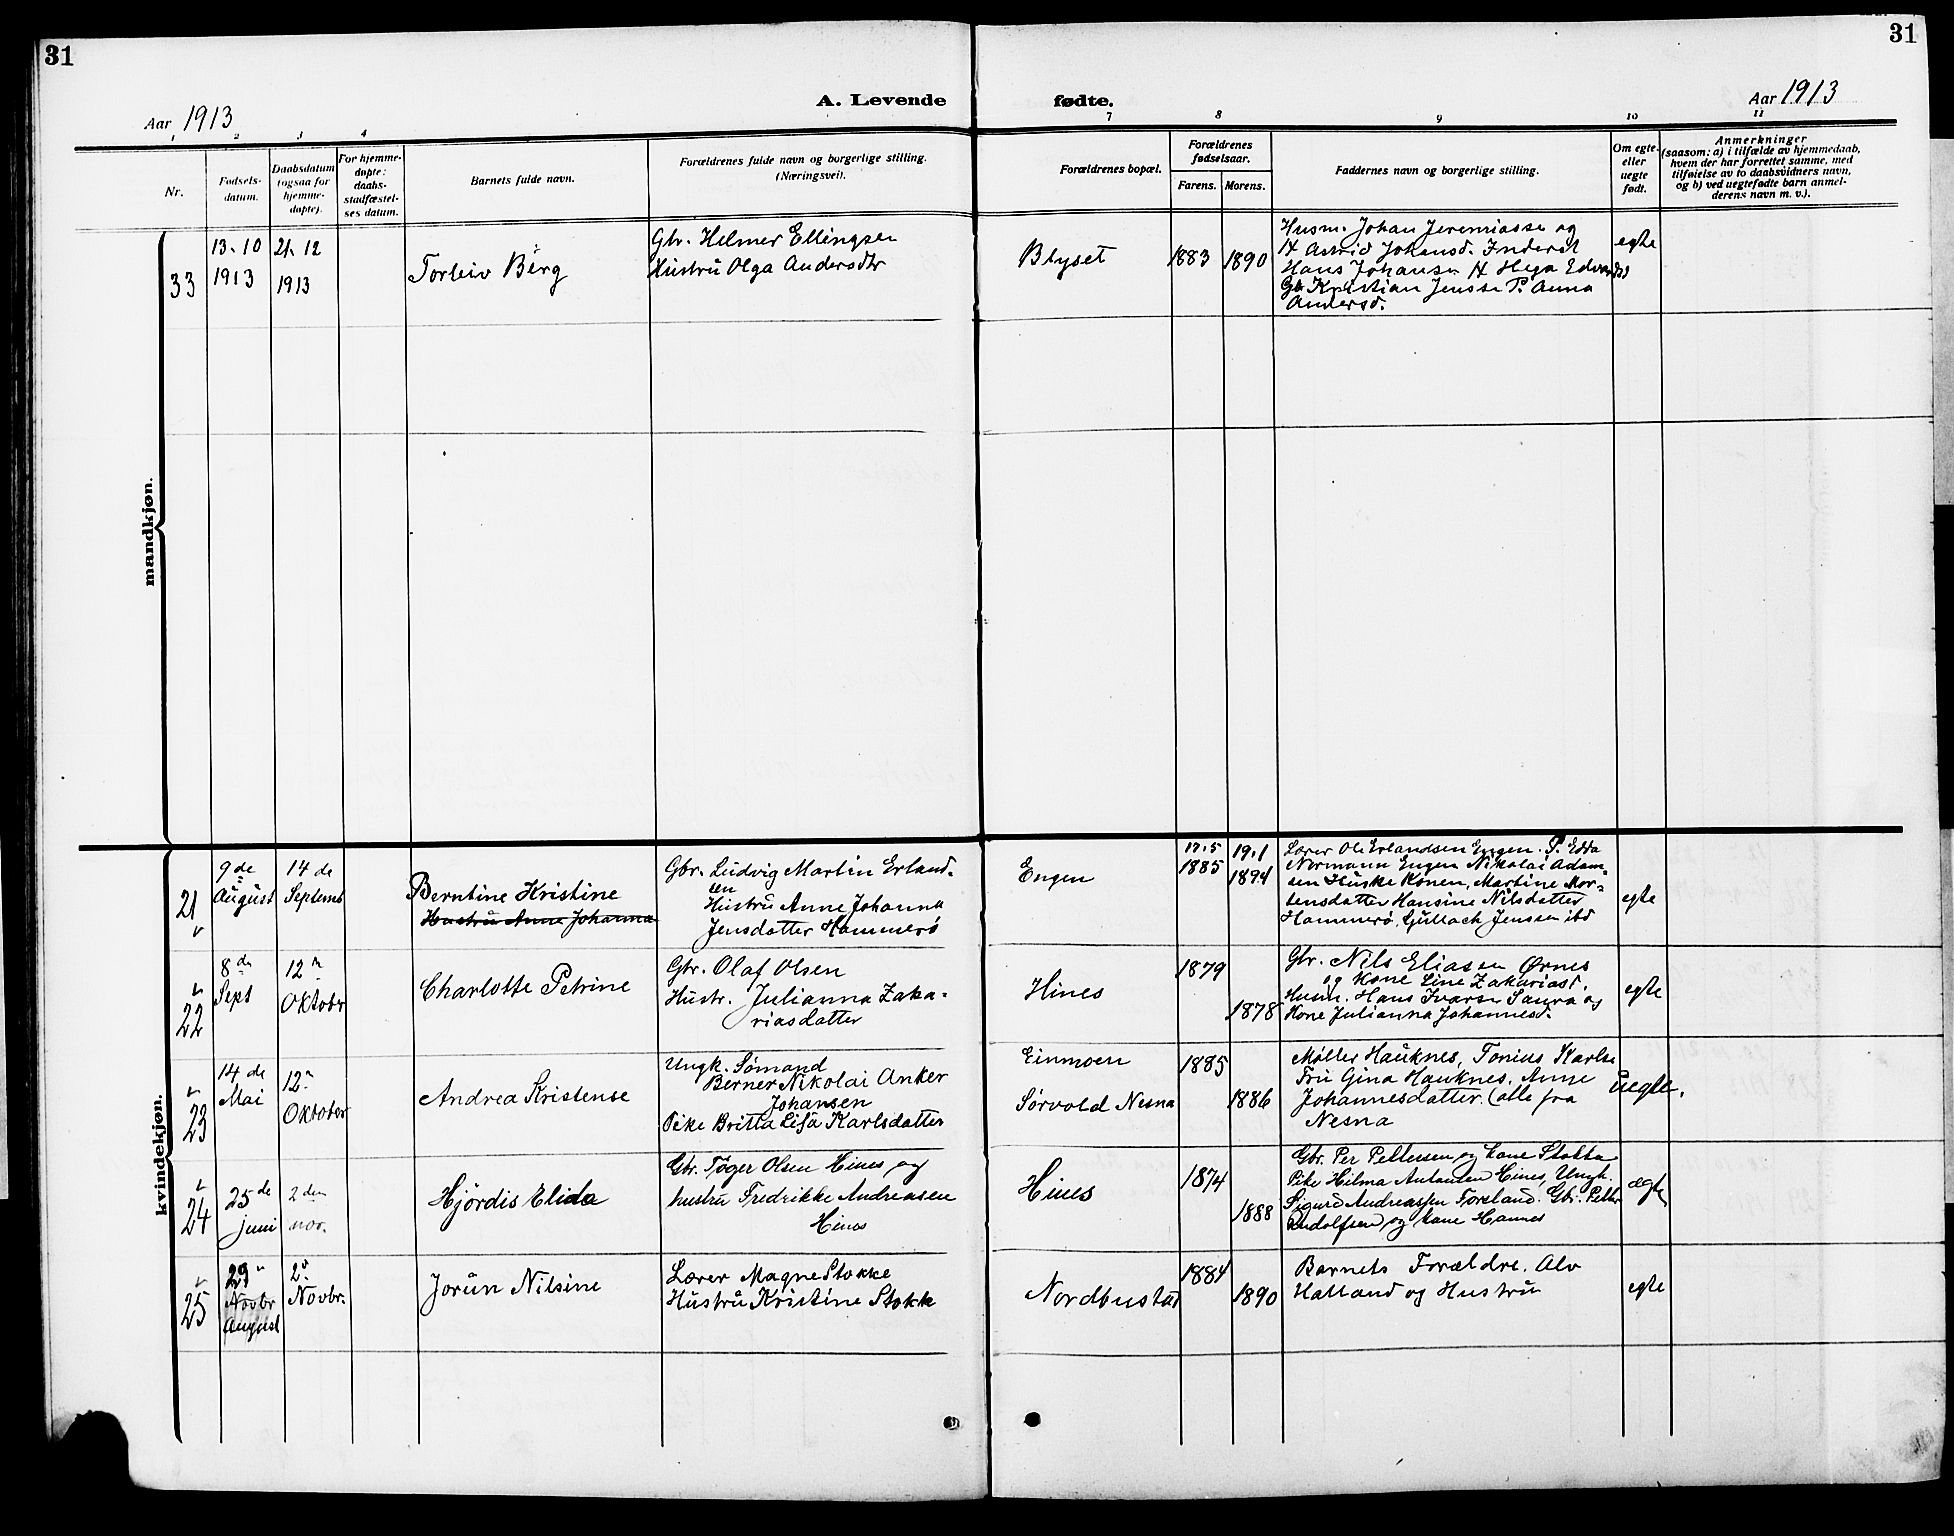 31
31
Aar 1913
A. Levende
fødte.
Aar 1913
1 2 3 4
7 8 9 10 11
Nr.
Fødsels-
datum.
Daabsdatum
(ogsaa for
hjemme-
døpte).
For hjemme-
døpte:
daabs-
stadfæstel-
ses datum.
Barnets fulde navn.
Forældrenes fulde navn og borgerlige stilling.
(Næringsvei).
Forældrenes bopæl.
Forældrenes
fødselsaar.
Farens. Morens.
Faddernes navn og borgerlige stilling.
Om egte-
eller
uegte
født.
Anmerkninger
(saasom: a) i tilfælde av hjemmedaab,
hvem der har forrettet samme, med
tilføielse av to daabsvidners navn,
og b) ved uegtefødte barn anmel-
derens navn m. v.).
mandkjøn.
33
13-10
1913
21-12
1913
Torleiv Berg
Gbr. Helmer Ellingsen
Hustru Olga Andersdtr
Blyset
1883
1890
Husm. Johan Jeremiassen og
H Astrid Johansd. Inderst
Hans Johansen H Hega Edvardsd
Gb Kristian Jensen P. Anna
Andersd.
egte
kvindekjøn.
21
9de
August
14de
Septemb
Berntine Kristine
Hustru Anne Johanna
Gbr. Ludvig Martin Erland-
sen
Hustru Anne Johanna
Jensdatter Hammerö
Engen
17.5
1885
19.1
1894
Lærer Ole Erlandsen Engen. P. Edda
Normann Engen Nikolai Adam-
sen Huske Konen, Martine Mor-
tensdatter Hansine Nilsdatter
Hammerö, Gullach Jenssen ibd
egte
22
8de
Sept
12n
Oktobr
Charlotte Petrine
Gbr. Olaf Olsen
Hustr. Julianna Zaka-
riasdatter
Hines
1879
1878
Gbr. Nils Eliasen Ørnes
og Kone Line Zakariasd.
Husm. Hans Ivarsen Saura og
Kone Julianna Johannesd.
egte
23
14de
Mai
12n
Oktober
Andrea Kristense
Ungk. Sømand
Berner Nikolai Anker
Johansen
Pike Britta Lisa Karlsdatter
Einmoen
Sørvold Nesna
1885
1886
Møller Hauknes, Tonius Karlse
Fru Gina Hauknes. Anne
Johannesdatter. (alle fra
Nesna
uegte.
24
25de
juni
2den
nov.
Hjördis Elida
Gbr. Tøger Olsen Hines og
hustru Fredrikke Andreasen
Hines
Hines
1874
1888
Gbr. Per Pettersen og kone Stokka
Pike Hilma Antonsen Hines, Ungk.
Sigurd Andreassen Forsland. Gbr. Petter
Rudolfsen og kone Hannes
ægte
25
29
Novbr
August
2d
Novbr.
Jorun Nilsine
Lærer Magne Stokke
Hustru Kristine Stokk
Nordbustad
1884
1890
Barnets Forældre. Alv
Halland og Hustru
egte